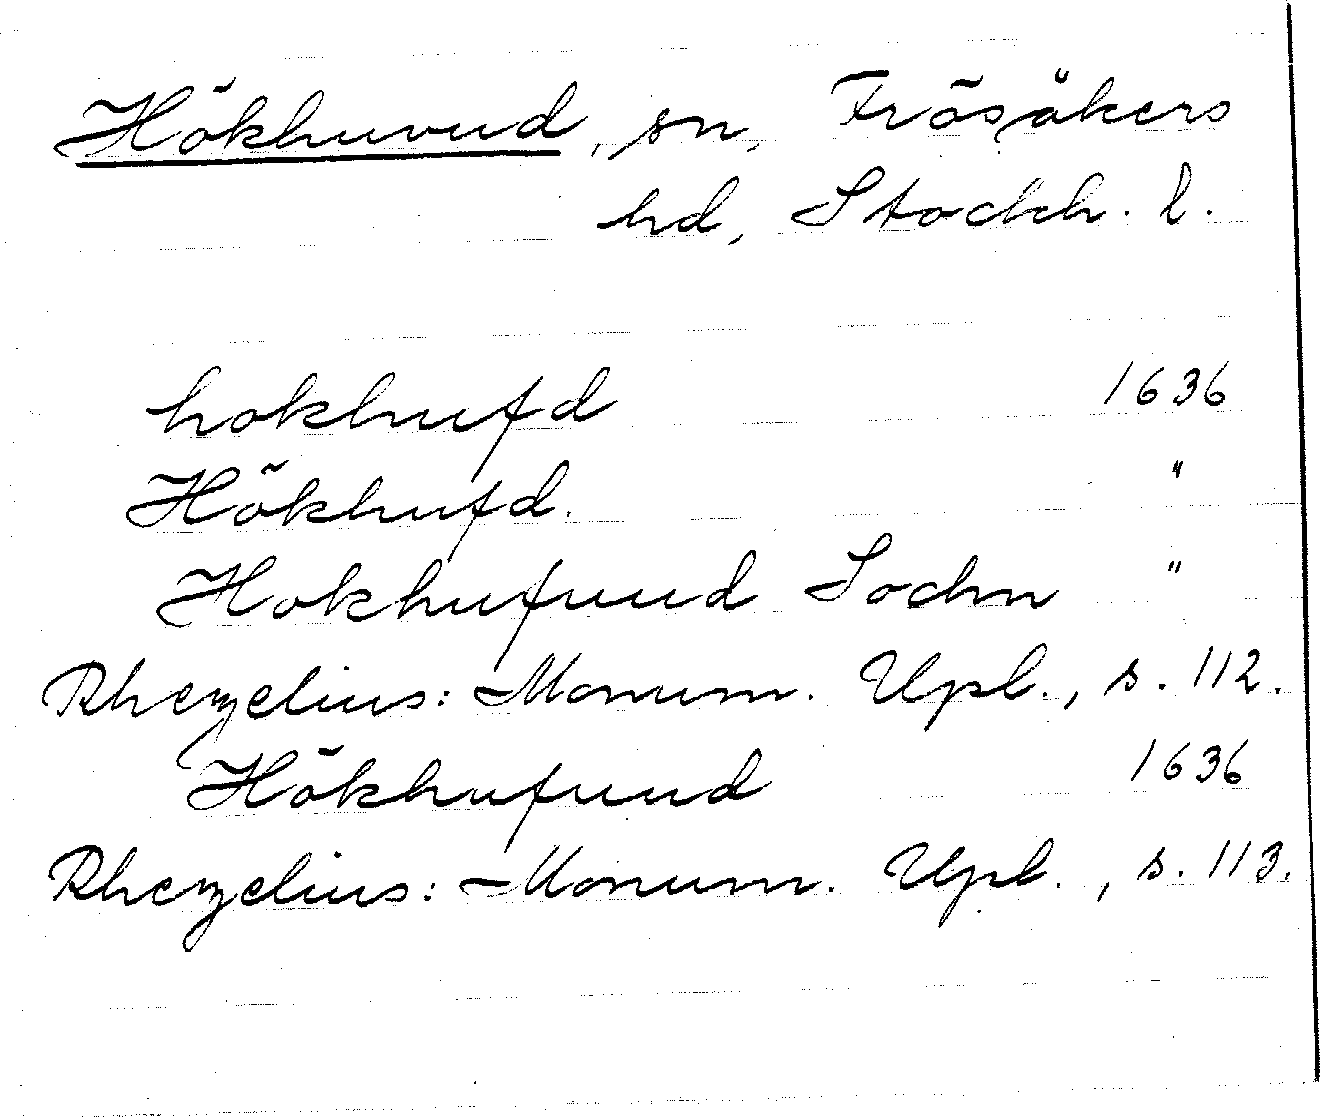 Hökhuvud, sn, Frösåkers
hd, Stockh. l.
hokhufd 1636
Hökhufd. "
Hokhufuud Sochn "
Rhezelius: Monum. Upl., s. 112.
Hökhufuud 1636
Rhezelius: Monum. Upl., s. 113.